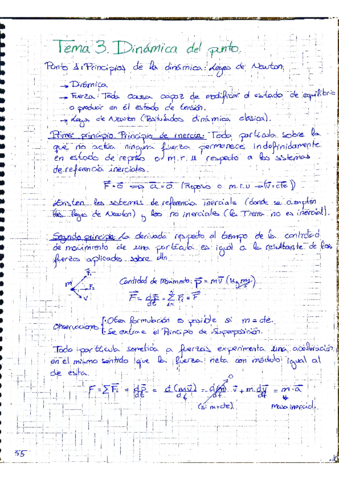 Tema 3. Dinámica del punto.
Punto 1: Principios de la dinámica: Leyes de Newton.
→ Dinámica.
→ Fuerza: Toda causa capaz de modificar el estado de equilibrio
o producir en él estado de tensión.
→ Leyes de Newton (Postulados dinámica clásica).
Primer principio. Principio de inercia: Toda partícula sobre la
que no actúa ninguna fuerza permanece indefinidamente
en estado de reposo o m.r.u respecto a los sistemas
de referencia inerciales.
F⃗=0⃗ ⟹ a⃗=0⃗ (Reposo o m.r.u → v⃗=cte)
Existen los sistemas de referencia inerciales (donde se cumplen
las leyes de Newton) y los no inerciales (la Tierra no es inercial).
Segundo principio: La derivada respecto al tiempo de la cantidad
de movimiento de una partícula es igual a la resultante de las
fuerzas aplicadas sobre ella.
Cantidad de Movimiento: p⃗ = mv⃗
F⃗ = dp⃗/dt = ΣF⃗i = F⃗
Observaciones: Otra formulación es posible si m = cte.
Se extrae el Principio de Superposición.
Toda partícula sometida a fuerzas experimenta una aceleración
en el mismo sentido que la fuerza neta con módulo igual al
de esta.
F = ΣF⃗i = dp⃗/dt = d(mv⃗)/dt = dm/dt · v⃗ + m · dv⃗/dt = m · a⃗
(si m=cte) Masa inercial.
55